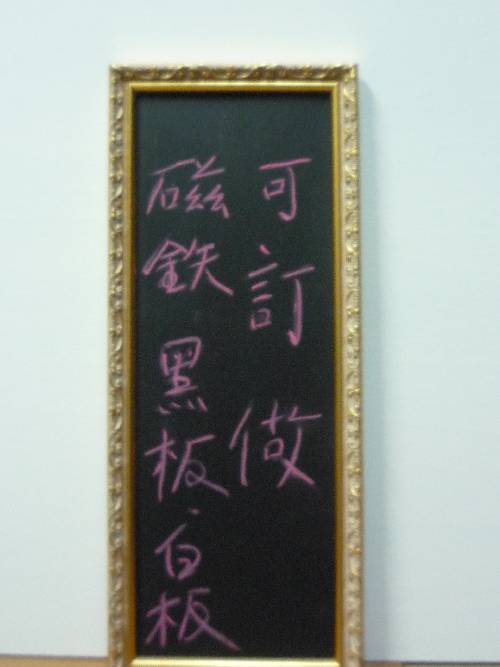 可訂做
磁鉄黑板.白板